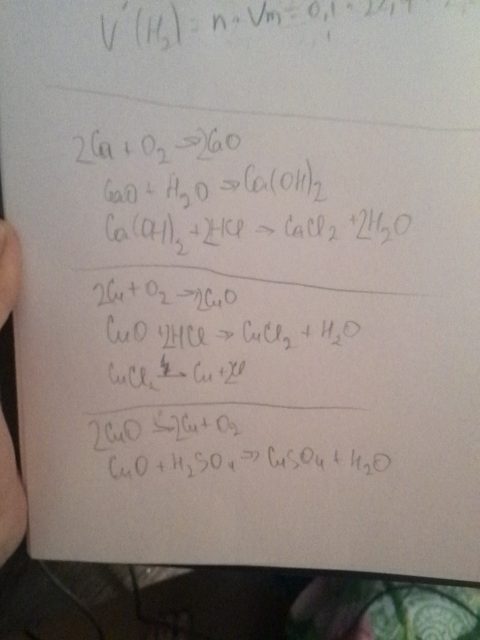 V (H₂) = n • Vm = 0,1 • 22,4
2Ca + O₂ → 2CaO
CaO + H₂O → Ca(OH)₂
Ca(OH)₂ + 2HCl → CaCl₂ + 2H₂O
2Cu + O₂ → 2CuO
CuO 2HCl → CuCl₂ + H₂O
CuCl₂ → Cu + 2Cl
2CuO → 2Cu + O₂
CuO + H₂SO₄ → CuSO₄ + H₂O